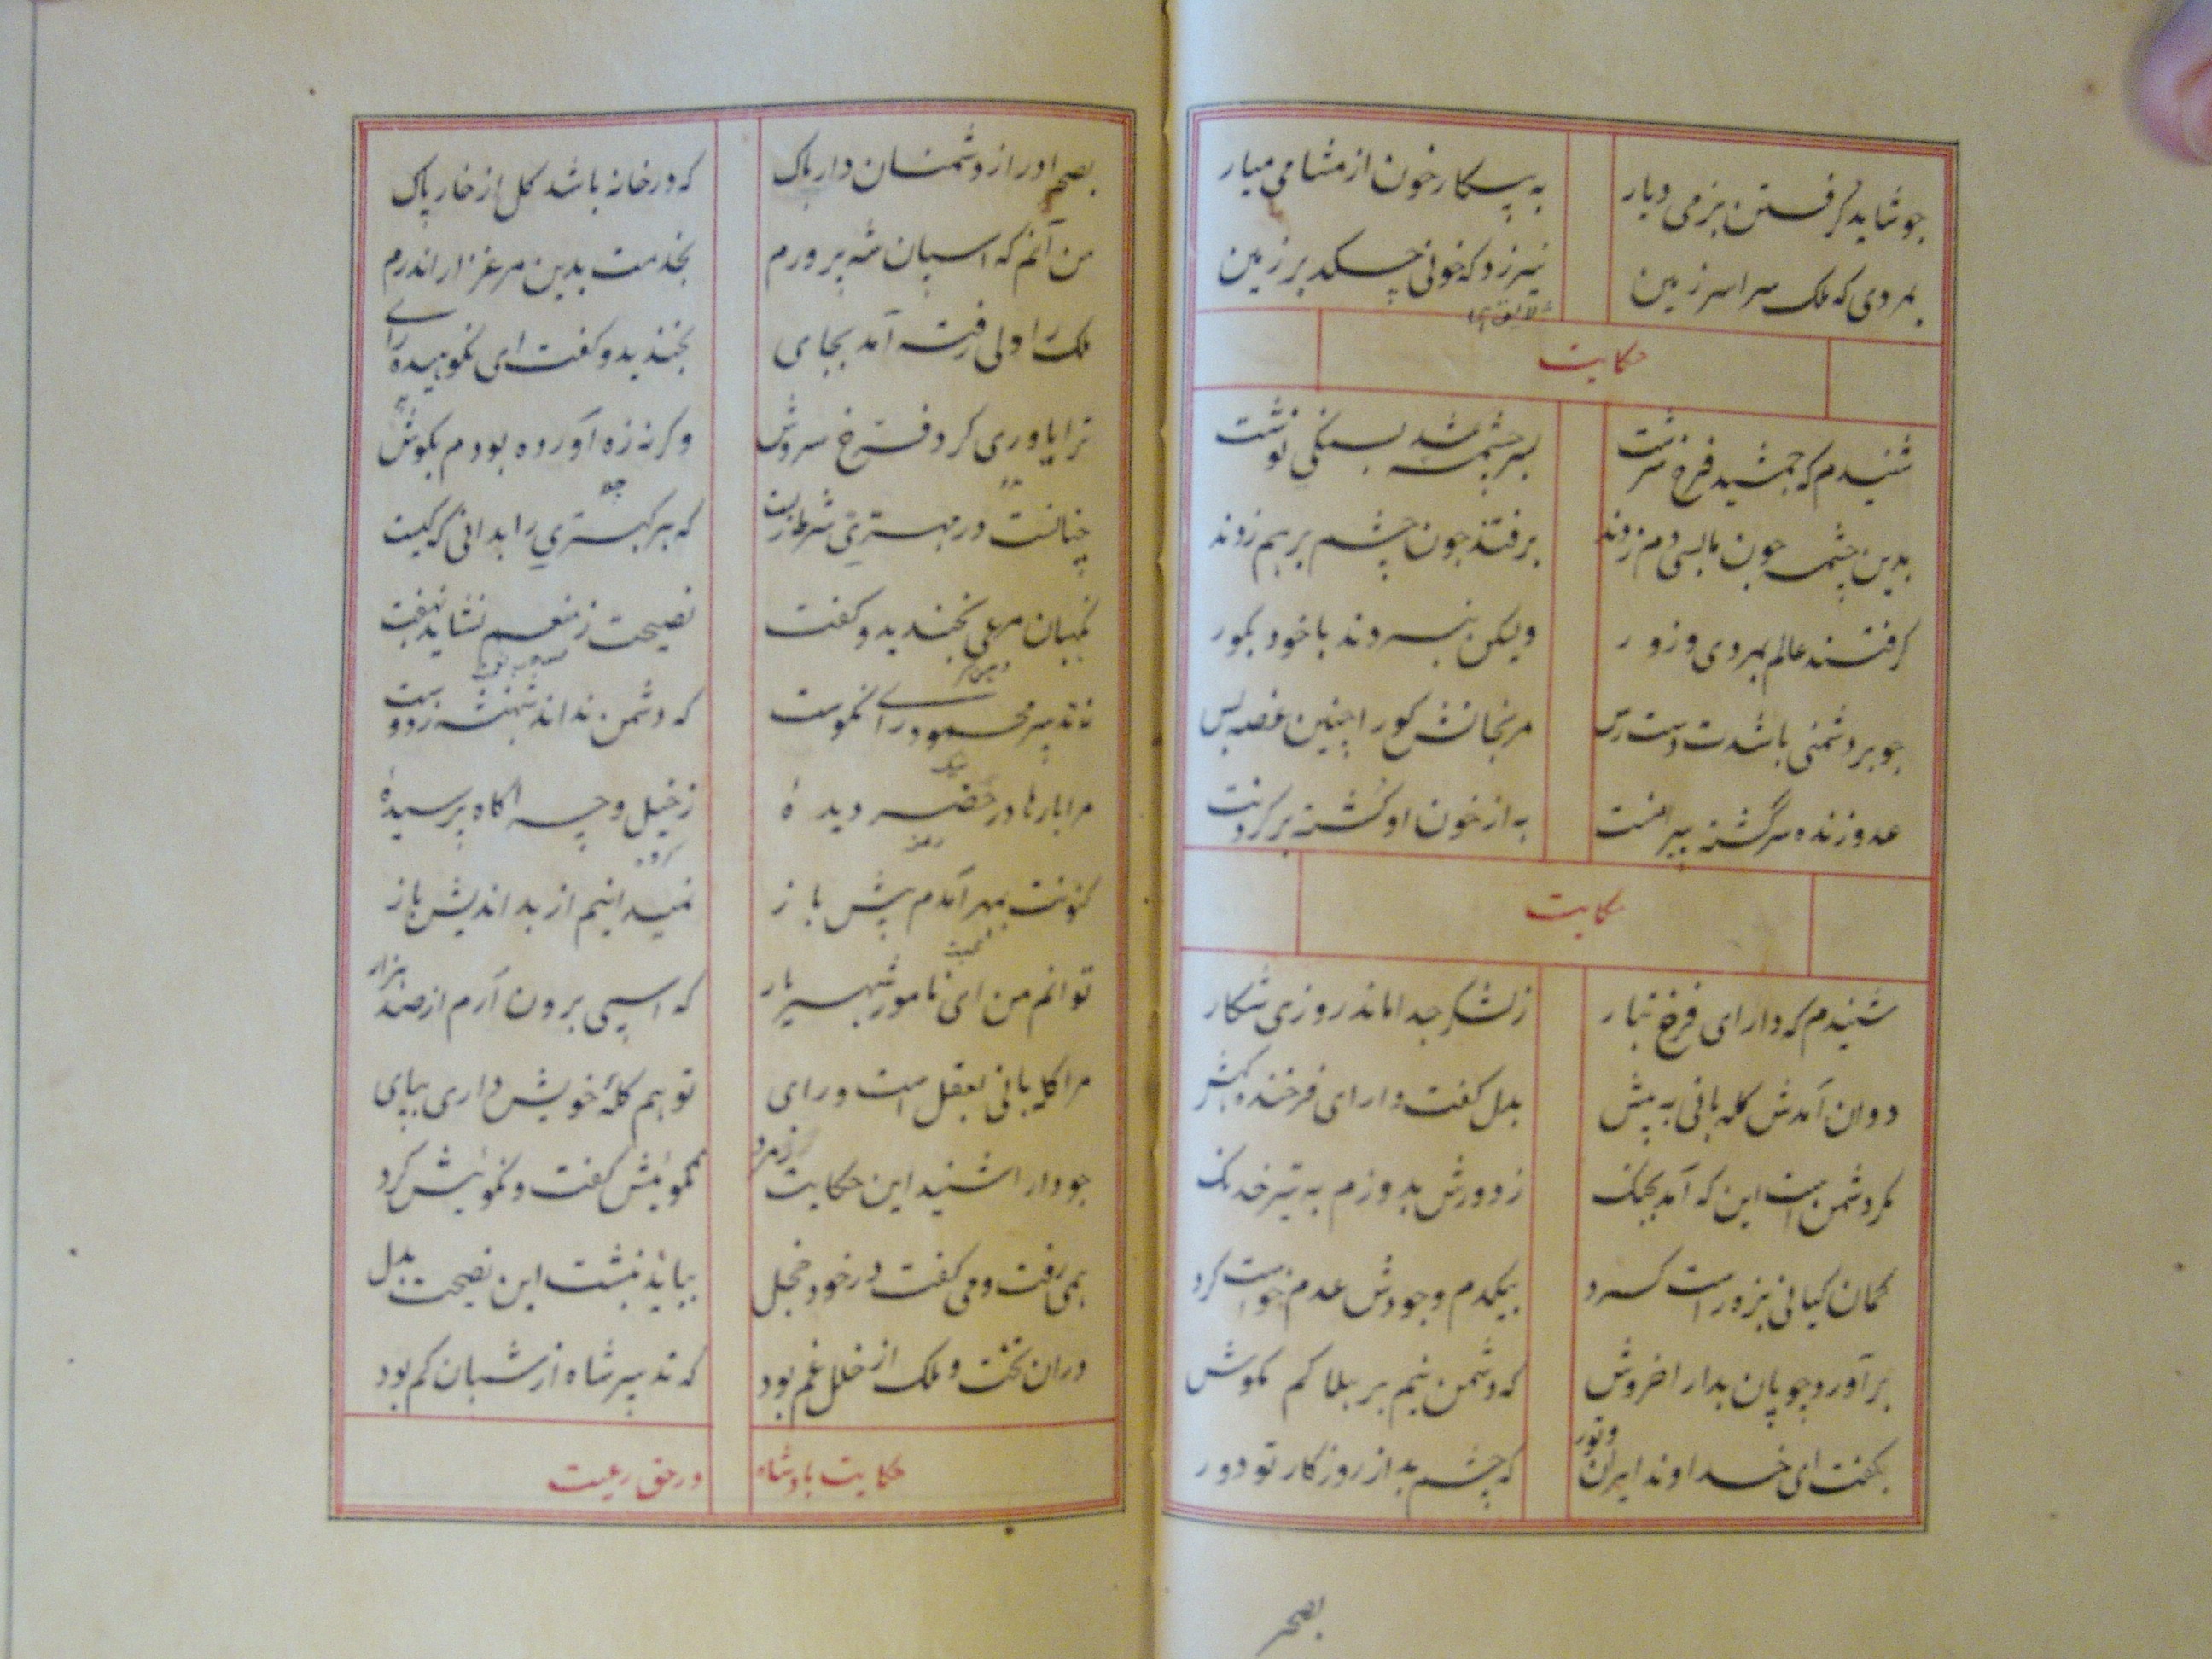 جو شاید گرفتن بنرمی دیار به پیکار خون از مشامی میار
بمردی که ملک سراسر زمین نیرزد که خونی چکد بر زمین
حکایت
شنیدم که جمشید فرخ سرشت بسرچشمه شد بسنگی نوشت
بدین چشمه جون ما بسی دم زدند برفتند جون چشم بر هم زدند
گرفتند عالم بمردی و زور ولیکن نبردند با خود بگور
جو بر دشمنی باشدت دست رس مرنجانش کورا چنین غصه بس
عدو زنده سرگشته پیرامنت به از خون او کشته بر گردنت
حکایت
شنیدم که دارای فرخ تبار ز لشکر جدا ماند روزی شکار
دوان آمدش کله بانی به پیش بدل کفت دارای فرخنده کیش
مکر دشمن است این که آمد بجنک ز دورش بدوزم به تیر خدنک
کمان کیانی بزه راست کرد بیکدم وجودش عدم خواست کرد
برآورد چوپان بدار اخروش که دشمن نیم بر هلاکم مکوش
بکفت ای خداوند ایران و تور که چشم بد از روزکار تو دور
بصحر
بصحر اور از دشمنان دار باک که در خانه باشد کل از خار پاک
من آنم که اسپان شه پرورم بخدمت بدین مرغزار اندرم
ملک را دلی رفته آمد بجای بخندید و کفت ای نکوهیده رای
ترا یاوری کرد فرخ سروش وکرنه زه آورده بودم بکوش
نکهبان مرعی بخندید و کفت نصیحت ز منعم نشاید نهفت
چنانست در مهتری شرط زیست که هر کهتری را بدانی که کیست
نه تدبیر محمود و رای نکوست که دشمن نداند شهنشه ز دوست
مرا بارها در حضر دیدهٔ ز خیل و چراکاه پرسیدهٔ
کنونت بمهر آمدم پیش باز نمیدانیم از بد اندیش باز
توانم من ای نامور شهریار که اسپی برون آرم از صد هزار
مرا کله بانی بعقل است و رای تو هم کلهٔ خویش داری بپای
جو دارا شنید این حکایت ز مرد نکوئیش کفت و نکوئیش کرد
همی رفت و می کفت در خود خجل بباید نبشت این نصیحت بدل
دران تخت و ملک از خلل غم بود که تدبیر شاه از شبان کم بود
حکایت بادشاه در حق رعیت